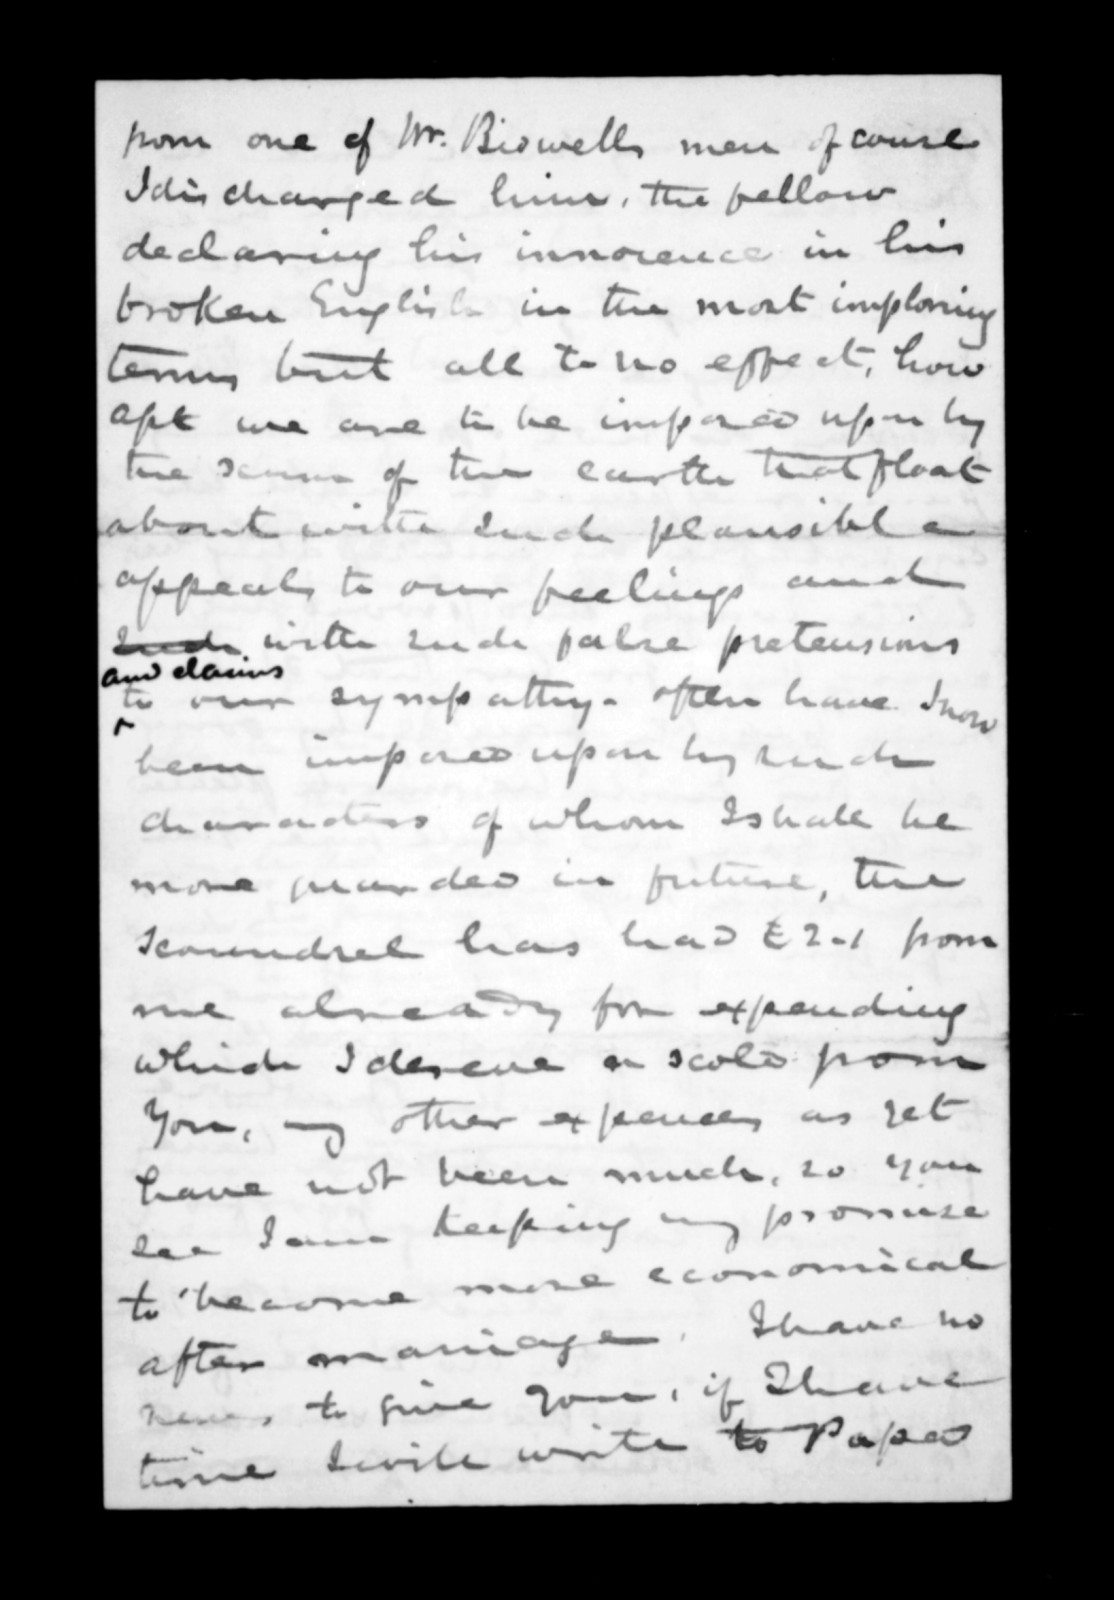 from one of Mr. Bidwells men of course
I discharged him, the fellow
declaring his innocence in his
broken English in the most imploring
terms but all to no effect, how
apt we are to be imposed upon by
the scum of the earth that float
about with such plausible
appeals to our feelings and
such with such false pretensions
and claims
to our sympathy. often have I now
been imposed upon by such
characters of whom I shall be
more guarded in future, the
scoundrel has had £2-1 from
me already for expending
which I deserve a scold from
you, my other expences as yet
have not been much, so you
see I am keeping my promise
to become more economical
after marriage. I have no
news to give you, if I have
time I will write to Papa